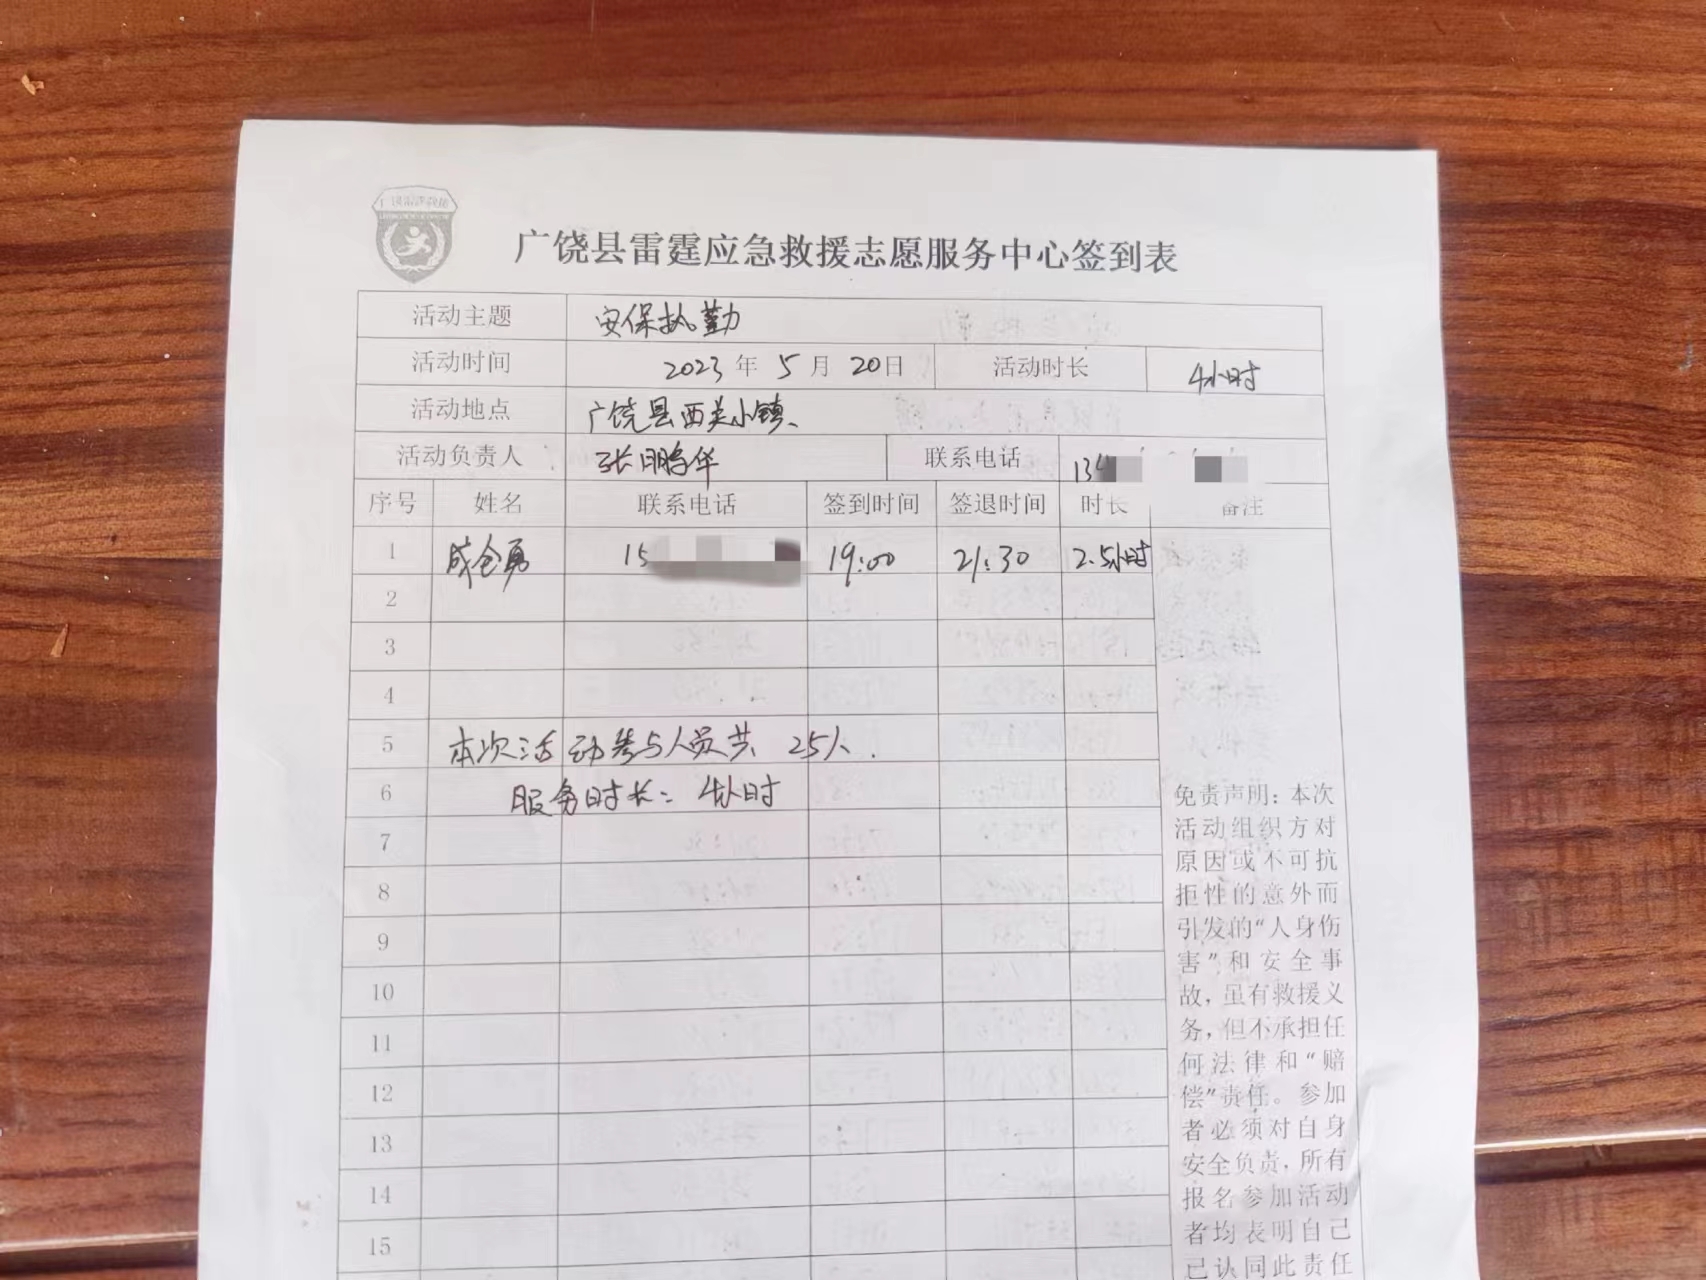 广饶县雷霆应急救援志愿服务中心签到表
活动主题 安保执勤
活动时间 2023 年 5 月 20 日 活动时长 4小时
活动地点 广饶县西关小镇、
活动负责人 张鹏华 联系电话 134
序号 姓名 联系电话 签到时间 签退时间 时长 备注
1 成仓勇 15 19:00 21:30 2.5小时
2
3
4
5 本次活动参与人员共 25人.
6 服务时长: 4小时
7
8
9
10
11
12
13
14
15
免责声明：本次
活动组织方对
原因或不可抗
拒性的意外而
引发的“人身伤
害”和安全事
故，虽有救援义
务，但不承担任
何法律和“赔
偿”责任。参加
者必须对自身
安全负责，所有
报名参加活动
者均表明自己
已认同此责任